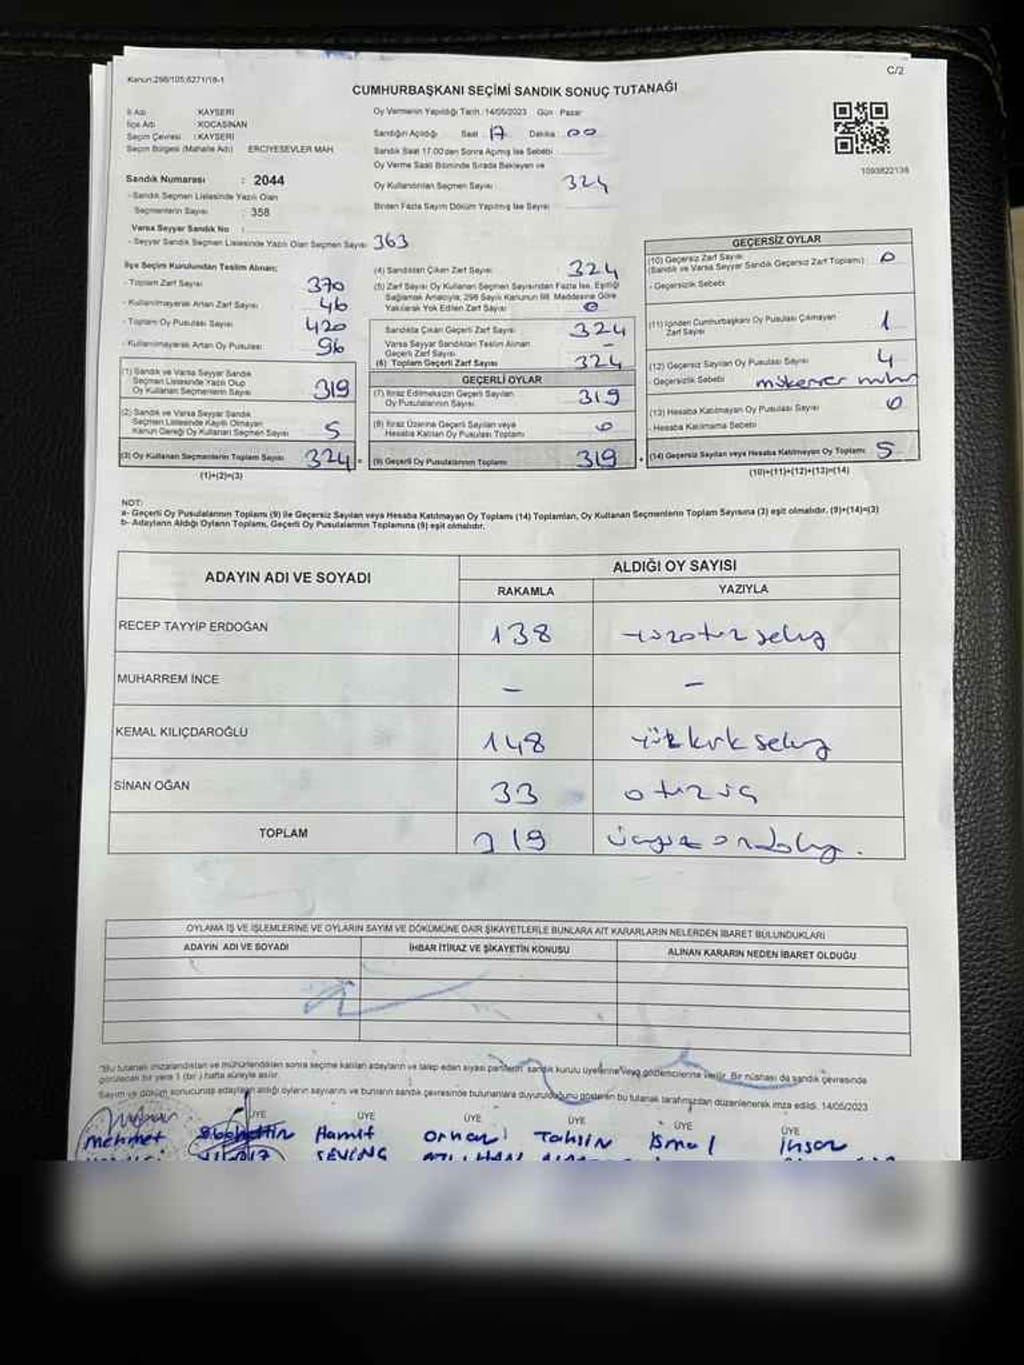 Kanun:298/105;6271/18-1
C/2
CUMHURBAŞKANI SEÇİMİ SANDIK SONUÇ TUTANAĞI
İl Adı : KAYSERİ
İlçe Adı : KOCASİNAN
Seçim Çevresi : KAYSERİ
Seçim Bölgesi (Mahalle Adı) : ERCİYESEVLER MAH.
Sandık Numarası : 2044
- Sandık Seçmen Listesinde Yazılı Olan
Seçmenlerin Sayısı : 358
Varsa Seyyar Sandık No :
- Seyyar Sandık Seçmen Listesinde Yazılı Olan Seçmen Sayısı 363
Oy Vermenin Yapıldığı Tarih :14/05/2023 Gün : Pazar
Sandığın Açıldığı Saat 17 Dakika : 00
Sandık Saat 17.00'den Sonra Açılmış İse Sebebi
Oy Verme Saati Bitiminde Sırada Bekleyen ve
Oy Kullandırılan Seçmen Sayısı : 324
Birden Fazla Sayım Döküm Yapılmış İse Sayısı
1093822136
İlçe Seçim Kurulundan Teslim Alınan;
- Toplam Zarf Sayısı 370
- Kullanılmayarak Artan Zarf Sayısı 46
- Toplam Oy Pusulası Sayısı 420
- Kullanılmayarak Artan Oy Pusulası 96
(1) Sandık ve Varsa Seyyar Sandık
Seçmen Listesinde Yazılı Olup
Oy Kullanan Seçmenlerin Sayısı 319
(2) Sandık ve Varsa Seyyar Sandık
Seçmen Listesinde Kayıtlı Olmayan
Kanun Gereği Oy Kullanan Seçmen Sayısı 5
(3) Oy Kullanan Seçmenlerin Toplam Sayısı 324
(1)+(2)=(3)
(4) Sandıktan Çıkan Zarf Sayısı 324
(5) Zarf Sayısı Oy Kullanan Seçmen Sayısından Fazla İse, Eşitliği
Sağlamak Amacıyla; 298 Sayılı Kanunun 98. Maddesine Göre
Yakılarak Yok Edilen Zarf Sayısı 0
Sandıkta Çıkan Geçerli Zarf Sayısı 324
Varsa Seyyar Sandıktan Teslim Alınan
Geçerli Zarf Sayısı -
(6) Toplam Geçerli Zarf Sayısı 324
GEÇERLİ OYLAR
(7) İtiraz Edilmeksizin Geçerli Sayılan
Oy Pusulalarının Sayısı 319
(8) İtiraz Üzerine Geçerli Sayılan veya
Hesaba Katılan Oy Pusulası Toplamı 0
(9) Geçerli Oy Pusulalarının Toplamı 319
GEÇERSİZ OYLAR
(10) Geçersiz Zarf Sayısı
(Sandık ve Varsa Seyyar Sandık Geçersiz Zarf Toplamı) 0
- Geçersizlik Sebebi
(11) İçinden Cumhurbaşkanı Oy Pusulası Çıkmayan
Zarf Sayısı 1
(12) Geçersiz Sayılan Oy Pusulası Sayısı 4
- Geçersizlik Sebebi mükerrer mühür
(13) Hesaba Katılmayan Oy Pusulası Sayısı 0
- Hesaba Katılmama Sebebi
(14) Geçersiz Sayılan veya Hesaba Katılmayan Oy Toplamı 5
(10)+(11)+(12)+(13)=(14)
NOT:
a- Geçerli Oy Pusulalarının Toplamı (9) ile Geçersiz Sayılan veya Hesaba Katılmayan Oy Toplamı (14) Toplamları, Oy Kullanan Seçmenlerin Toplam Sayısına (3) eşit olmalıdır. (9)+(14)=(3)
b- Adayların Aldığı Oyların Toplamı, Geçerli Oy Pusulalarının Toplamına (9) eşit olmalıdır.
ADAYIN ADI VE SOYADI
ALDIĞI OY SAYISI
RAKAMLA YAZIYLA
RECEP TAYYİP ERDOĞAN 138 yüzotuz sekiz
MUHARREM İNCE - -
KEMAL KILIÇDAROĞLU 148 yüzkırk sekiz
SİNAN OĞAN 33 otuz üç
TOPLAM 319 üçyüz ondokuz.
OYLAMA İŞ VE İŞLEMLERİNE VE OYLARIN SAYIM VE DÖKÜMÜNE DAİR ŞİKAYETLERLE BUNLARA AİT KARARLARIN NELERDEN İBARET BULUNDUKLARI
ADAYIN ADI VE SOYADI İHBAR İTİRAZ VE ŞİKAYETİN KONUSU ALINAN KARARIN NEDEN İBARET OLDUĞU
"Bu tutanak imzalandıktan ve mühürlendikten sonra seçime katılan adayların ve talep eden siyasi partilerin sandık kurulu üyelerine/veya gözlemcilerine verilir. Bir nüshası da sandık çevresinde
görülecek bir yere 1 (bir) hafta süreyle asılır.
Sayım ve döküm sonucunda adayların aldığı oyların sayılarını ve bunların sandık çevresinde bulunanlara duyurulduğunu gösteren bu tutanak tarafımızdan düzenlenerek imza edildi. 14/05/2023
ÜYE ÜYE ÜYE ÜYE ÜYE ÜYE
Mehmet Hamit Orhan Tahsin İsmail İhsan
SEVİNG